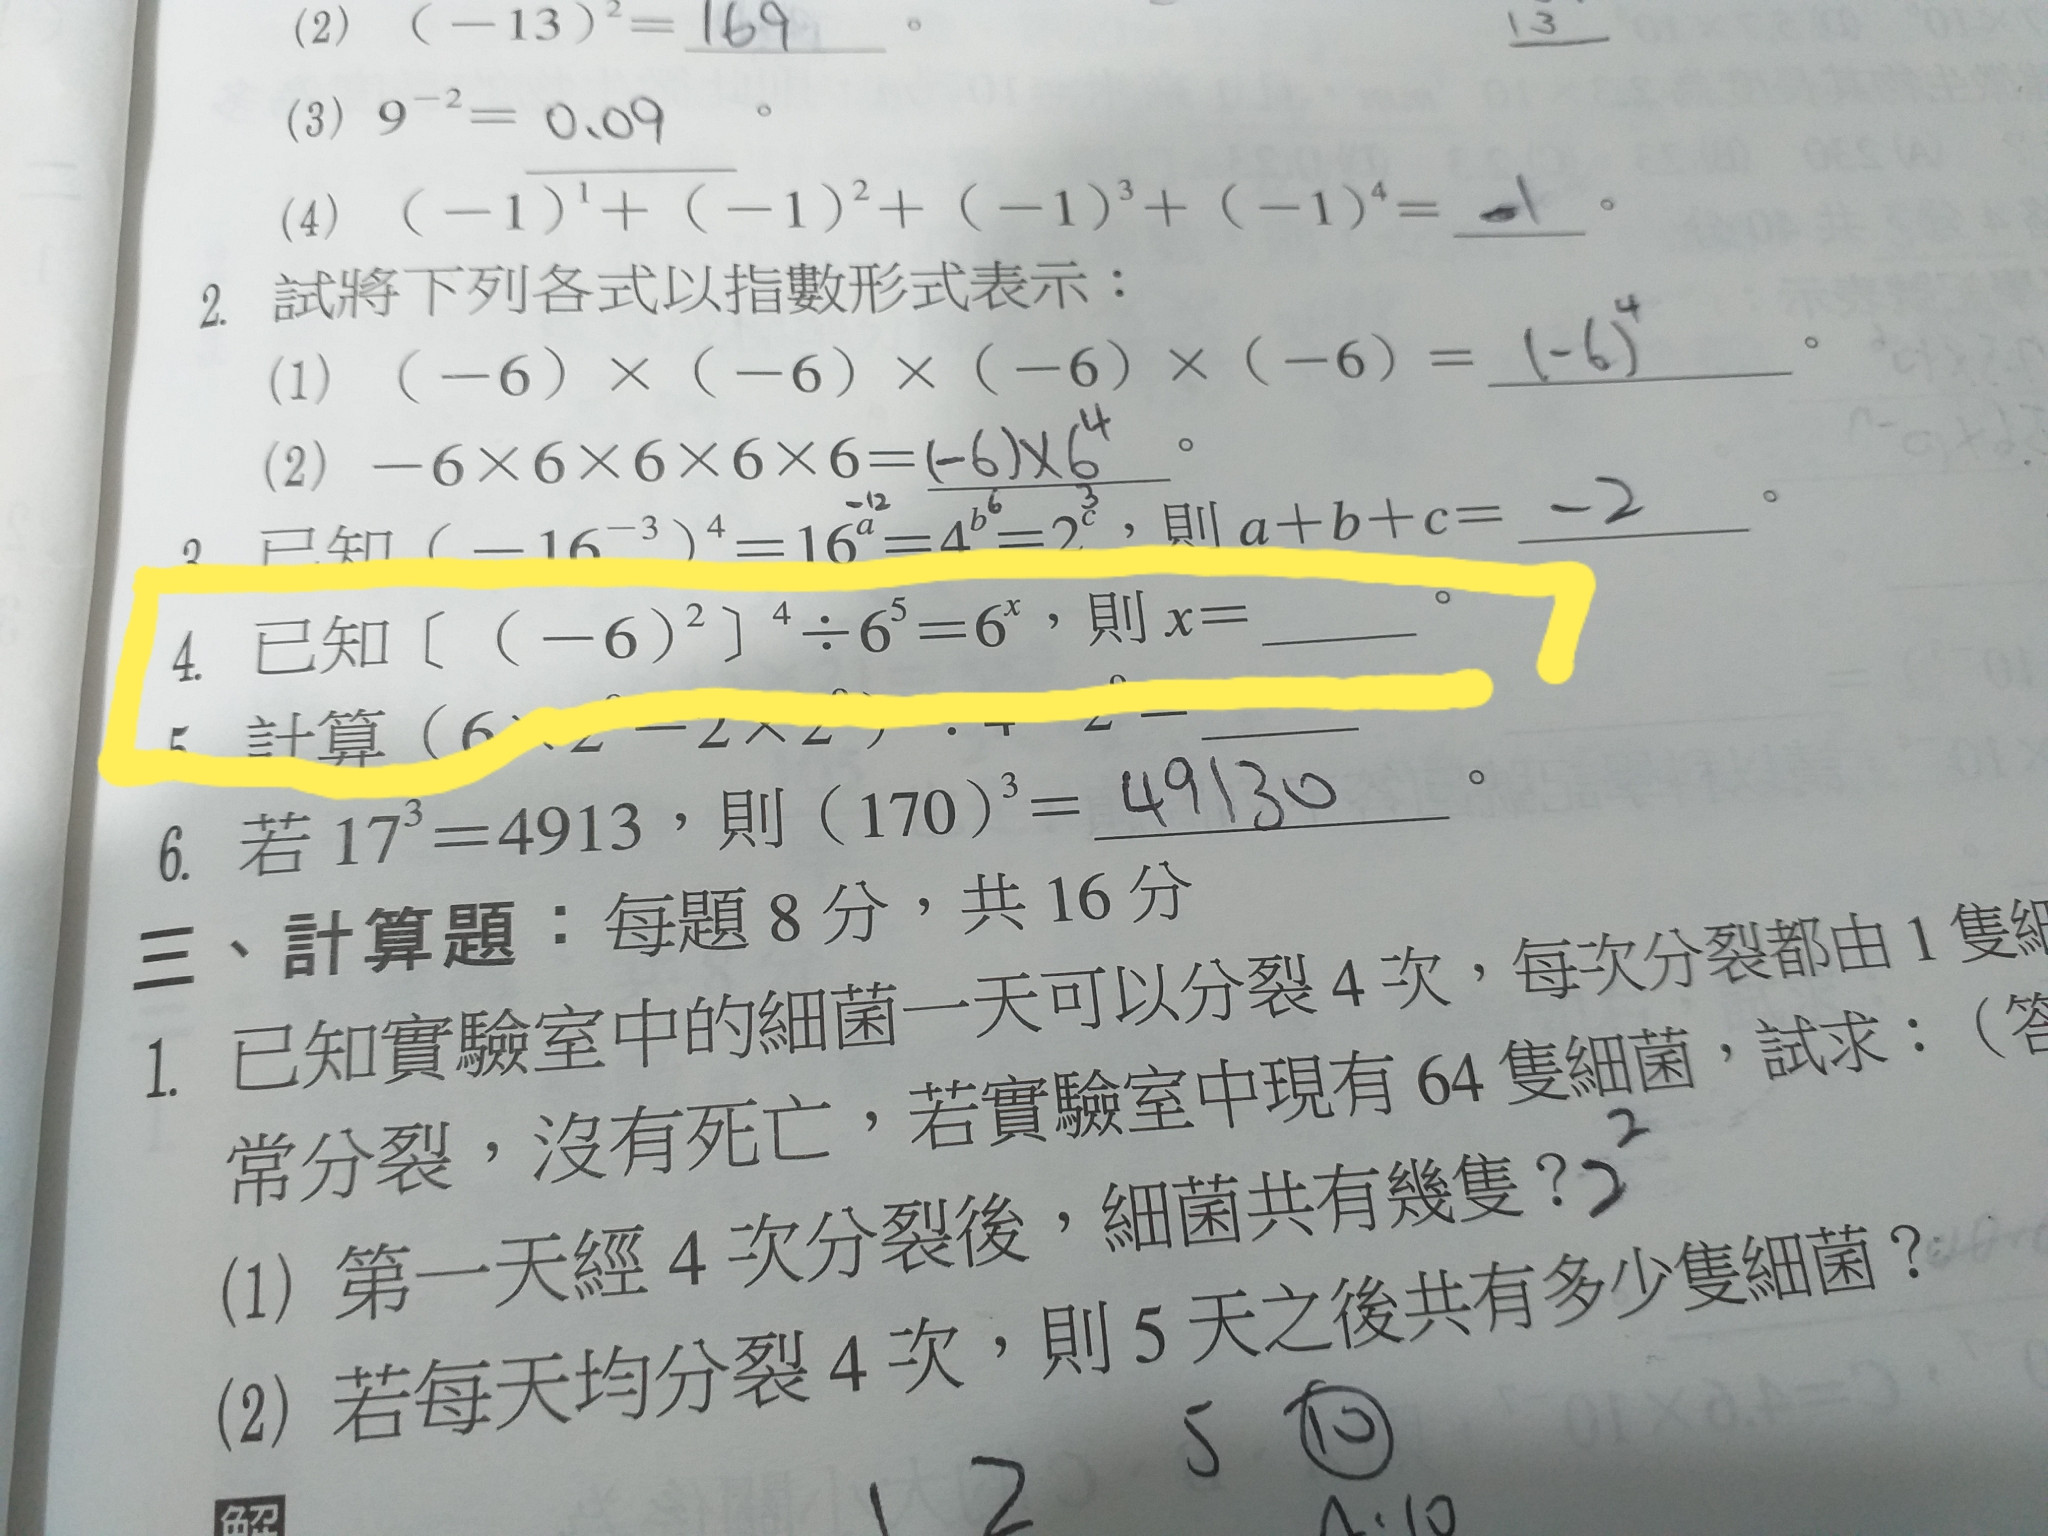 (2) (−13)²= 169 。
13
(3) 9⁻²= 0.09 。
(4) (−1)¹+(−1)²+(−1)³+(−1)⁴= -1 。
2. 試將下列各式以指數形式表示：
(1) (−6)×(−6)×(−6)×(−6)= (-6)⁴ 。
(2) −6×6×6×6×6= (-6)×6⁴ 。
-12 6 3
3. 已知(−16⁻³)⁴=16ᵃ=4ᵇ=2ᶜ，則 a+b+c= -2 。
4. 已知〔(−6)²〕⁴÷6⁵=6ˣ，則 x=____。
5. 計算(6
6. 若 17³=4913，則(170)³= 49130 。
三、計算題：每題 8 分，共 16 分
1. 已知實驗室中的細菌一天可以分裂 4 次，每次分裂都由 1 隻細
常分裂，沒有死亡，若實驗室中現有 64 隻細菌，試求：（答
(1) 第一天經 4 次分裂後，細菌共有幾隻？2²
(2) 若每天均分裂 4 次，則 5 天之後共有多少隻細菌？
5 10
1 2
A:10
解